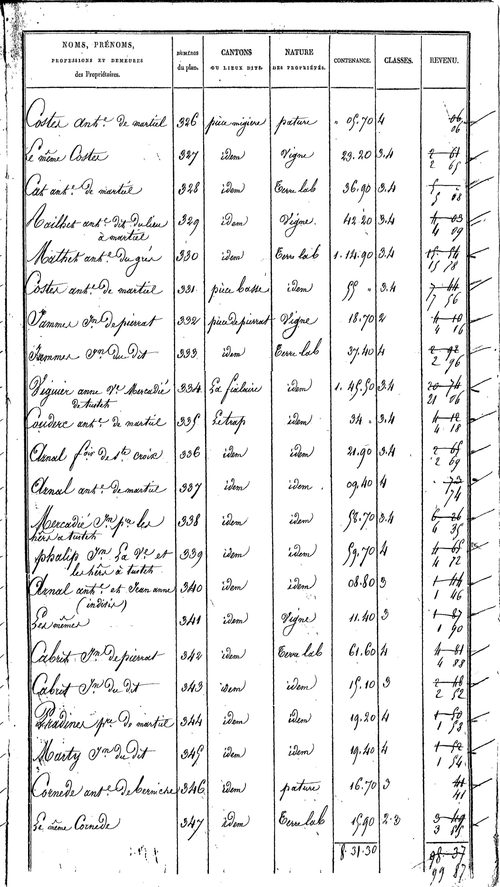 NOMS, PRÉNOMS, PROFESSIONS ET DEMEURES des Propriétaires. NUMÉROS du plan. CANTONS OU LIEUX DITS. NATURE DES PROPRIÉTÉS. CONTENANCE. CLASSES. REVENU.
Costes ant.e de martiel 326 pièce migiere pature " 05.70 4 06 06
Le même Costes 327 idem Vigne 23.20 3.4 2 61 2 65
Cat ant.e de martiel 328 idem Terre lab 36.90 3.4 5 08
ant.e dit du lieu 329 idem Vigne. 42 20 3.4 4 03 4 09
à martiel
Mathet ant.e du grés 330 idem Terre lab 1.14.90 3.4 15 54 15 78
Costes ant.e de martiel 331 pièce basse idem 55 " 3.4 7 44 7 56
Jammes Jn. de pierrat 332 pièce de pierrat Vigne 18.70 2 4 10 4 16
Jammes Jn. du dit 333 idem Terre lab 37.40 4 2 92 2 96
Viguier anne Ve. Mercadié 334 La idem 1.45.50 3.4 20 74 21 06
Couderc ant.e de martiel 335 Le trap idem 34 " 3.4 4 12 4 18
Arnal fois de Ste croix 336 idem idem 21.90 3.4 2 65 2 69
Arnal ant.e de martiel 337 idem idem 09.40 4 73 74
Mercadié Jn. pre les 338 idem idem 58.70 3.4 6 26 6 35
hérs à
phalip Jn. La Ve. et 339 idem idem 59.70 4 4 65 4 72
les hérs à
Arnal ant.e et Jean anne 340 idem idem 08.80 3 1 44 1 46
(indivis)
Les mêmes 341 idem Vigne 11.40 3 1 87 1 90
Cabrit Jn. de pierrat 342 idem Terre lab 61.60 4 4 81 4 88
Cabrit Jn. du dit 343 idem idem 15.10 3 2 48 2 52
Pradines pre. de martiel 344 idem idem 19.20 4 1 50 1 53
Marty Jn. du dit 345 idem idem 19.40 4 1 52 1 54
Cornede ant.e de 346 idem pature 16.70 3 41 41
Le même Cornede 347 idem Terre lab 15.90 2.3 3 49 3 55
8.31.30 98 37 99 87